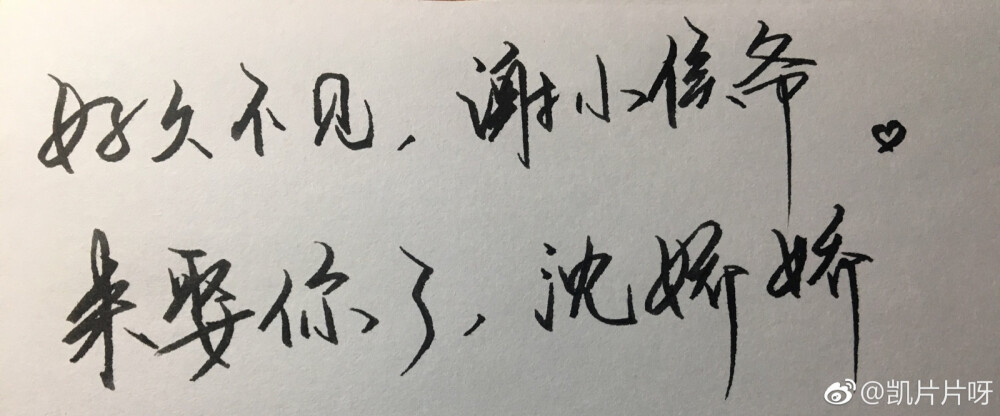 好久不见，谢小侯爷。
来娶你了，沈娇娇
@凯片片呀